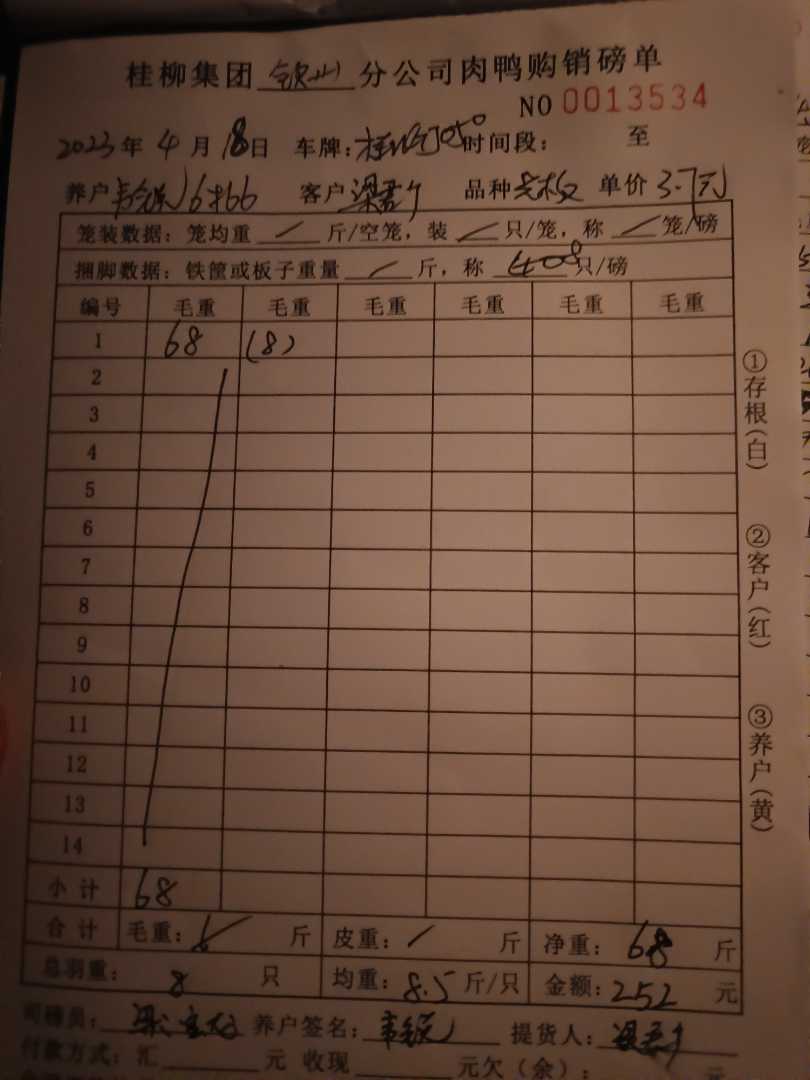 桂柳集团 分公司肉鸭购销磅单
NO 0013534
2023年4月18日 车牌: 时间段: 至
养户 客户 梁 品种 单价 3.7元
笼装数据:笼均重 / 斤/空笼,装 / 只/笼,称 / 笼/磅
捆脚数据:铁筐或板子重量 / 斤,称 只/磅
编号 毛重 毛重 毛重 毛重 毛重 毛重
1 68 (8)
2
3
4
5
6
7
8
9
10
11
12
13
14
小计 68
合计 毛重: 斤 皮重: / 斤 净重: 68 斤
总羽重: 8 只 均重: 8.5 斤/只 金额: 252 元
司磅员: 梁 养户签名: 韦 提货人:
付款方式:汇 元 收现 元欠(余): 元
①存根(白)
②客户(红)
③养户(黄)